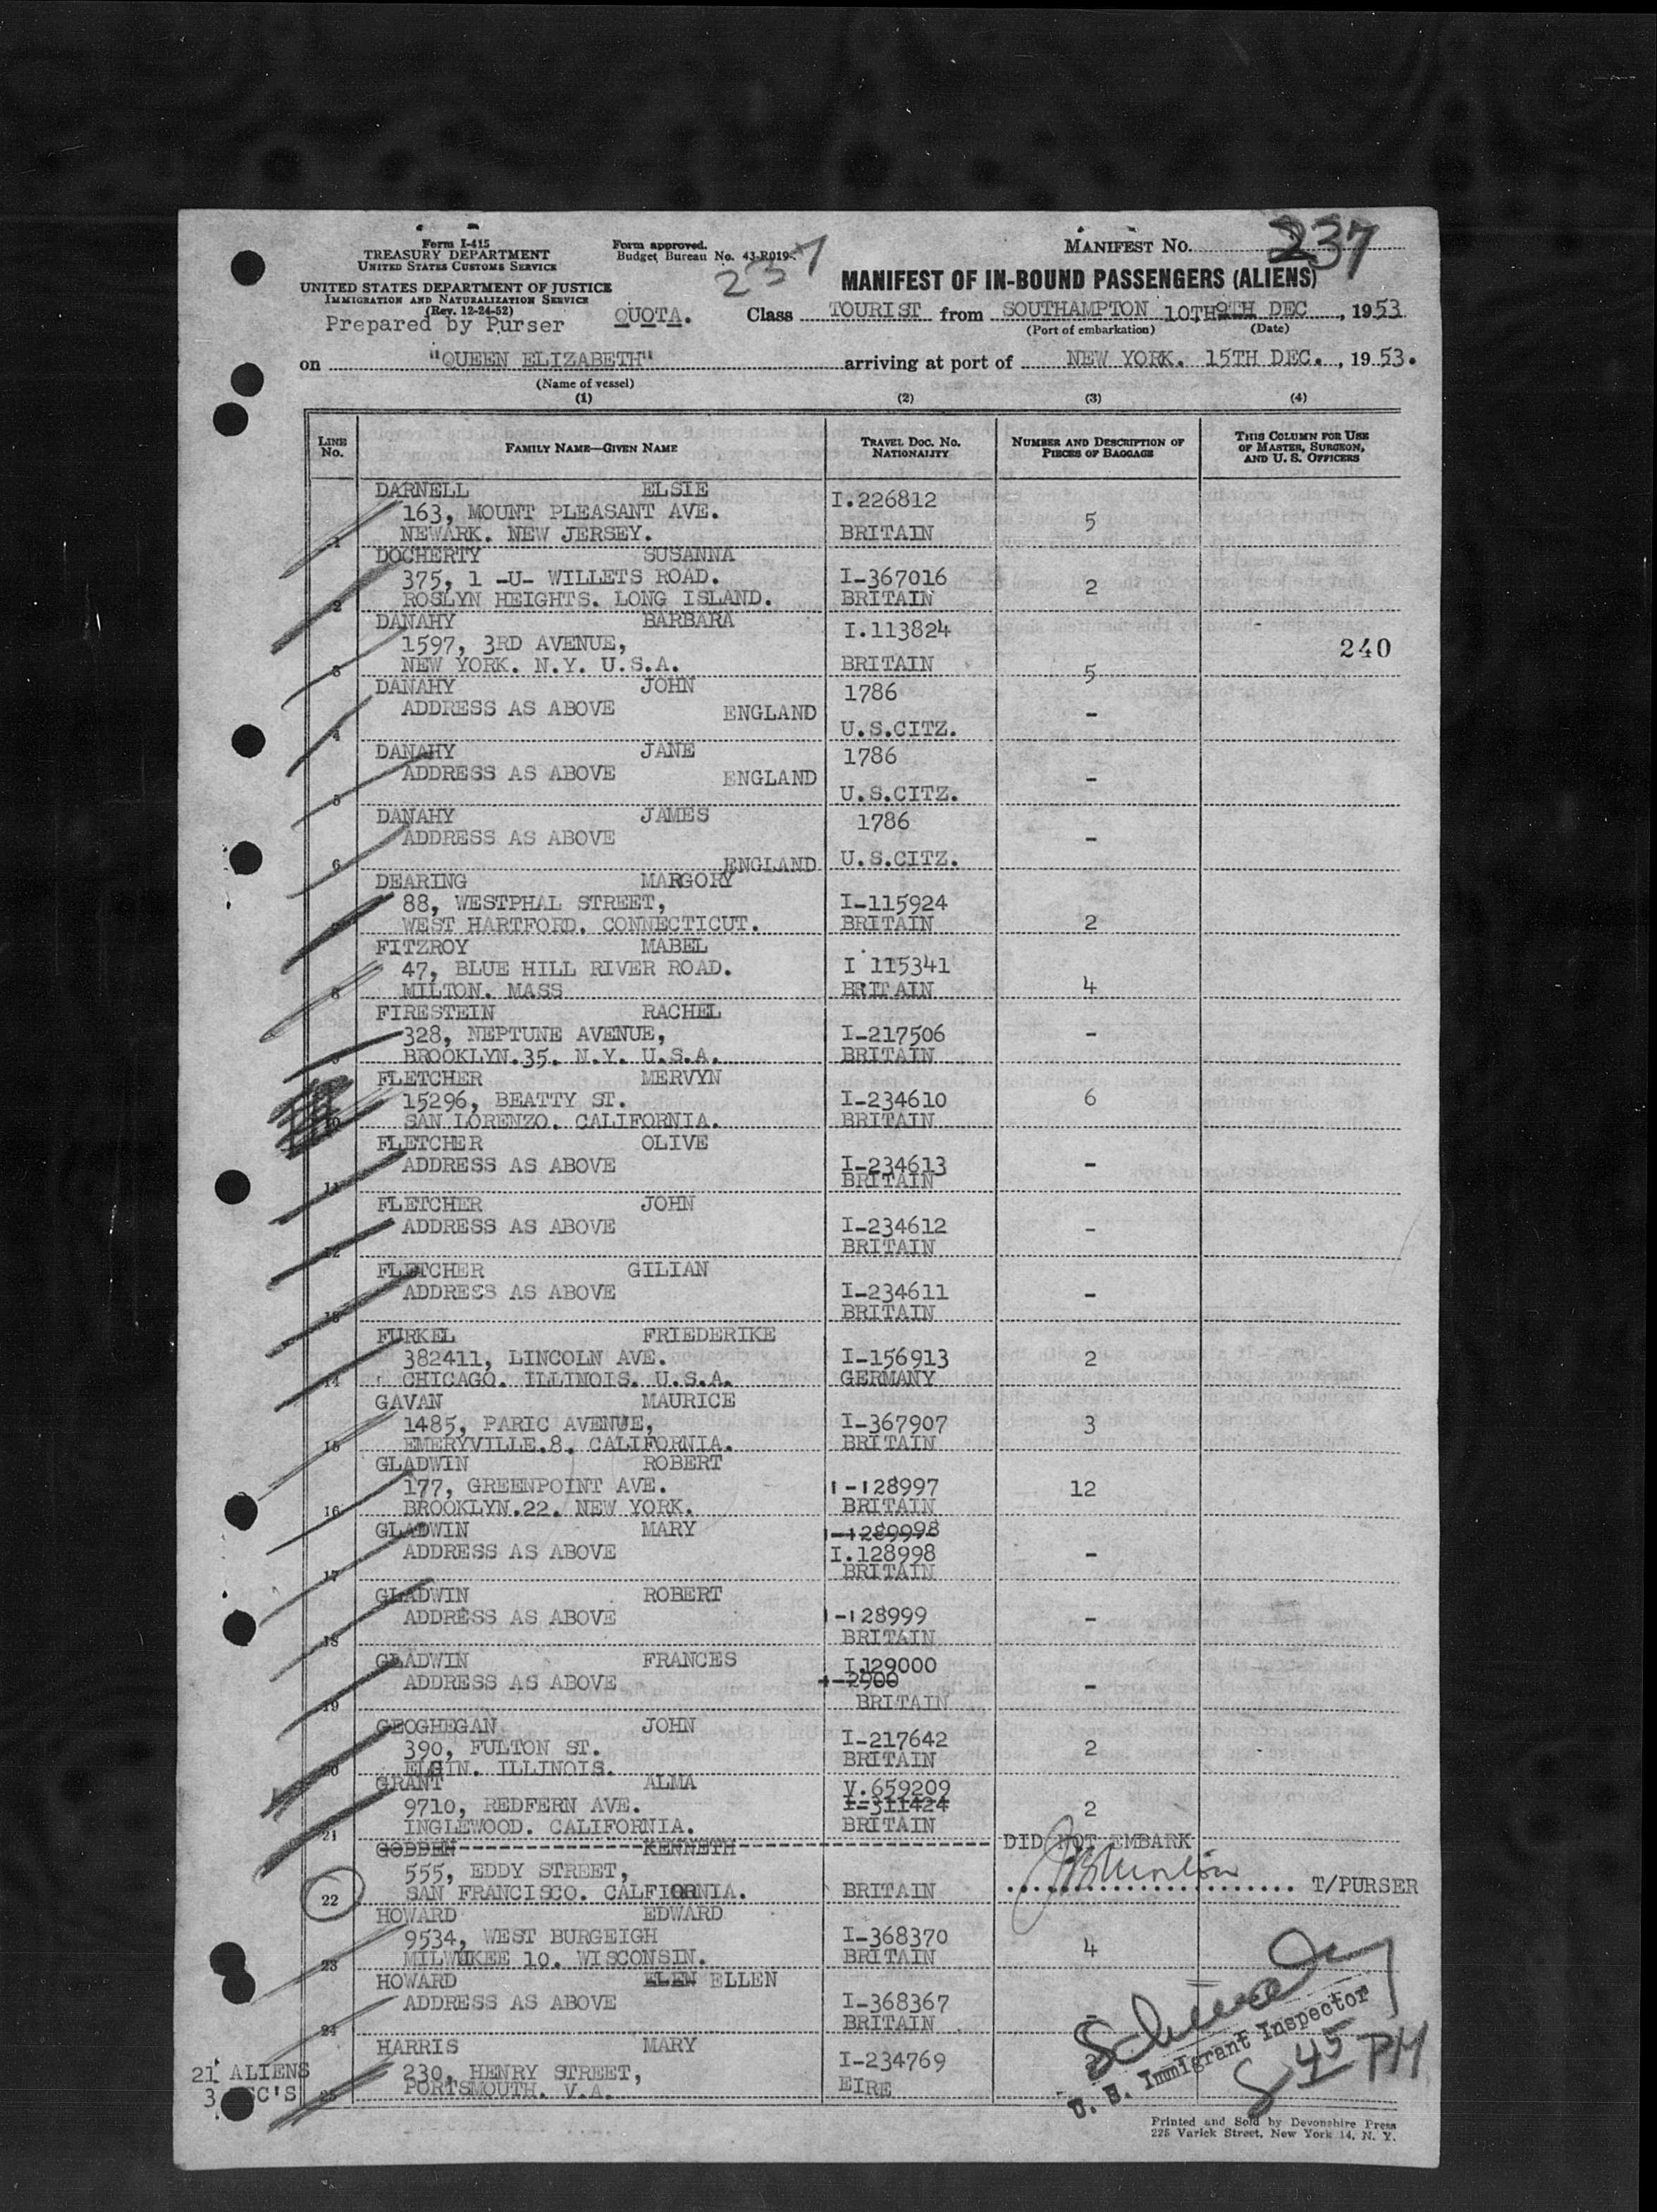 Form I-415
TREASURY DEPARTMENT
UNITED STATES CUSTOMS SERVICE
UNITED STATES DEPARTMENT OF JUSTICE
IMMIGRATION AND NATURALIZATION SERVICE
(Rev. 12-24-52)
Prepared by Purser
Form approved.
Budget Bureau No. 43-R019
237
MANIFEST No. 237
MANIFEST OF IN-BOUND PASSENGERS (ALIENS)
QUOTA. Class TOURIST from SOUTHAMPTON 10TH 9TH DEC , 1953
(Port of embarkation) (Date)
on "QUEEN ELIZABETH" arriving at port of NEW YORK. 15TH DEC. , 1953.
(Name of vessel)
(1) (2) (3) (4)
LINE No. FAMILY NAME—GIVEN NAME TRAVEL DOC. NO. NATIONALITY NUMBER AND DESCRIPTION OF PIECES OF BAGGAGE THIS COLUMN FOR USE OF MASTER, SURGEON, AND U. S. OFFICERS
DARNELL ELSIE I.226812
163, MOUNT PLEASANT AVE. 5
1 NEWARK. NEW JERSEY. BRITAIN
DOCHERTY SUSANNA
375, 1 -U- WILLETS ROAD. I-367016 2
2 ROSLYN HEIGHTS. LONG ISLAND. BRITAIN
DANAHY BARBARA I.113824
1597, 3RD AVENUE, 240
3 NEW YORK. N.Y. U.S.A. BRITAIN 5
DANAHY JOHN 1786
ADDRESS AS ABOVE ENGLAND -
4 U.S.CITZ.
DANAHY JANE 1786
ADDRESS AS ABOVE ENGLAND -
5 U.S.CITZ.
DANAHY JAMES 1786
ADDRESS AS ABOVE -
6 ENGLAND U.S.CITZ.
DEARING MARGORY
88, WESTPHAL STREET, I-115924
7 WEST HARTFORD. CONNECTICUT. BRITAIN 2
FITZROY MABEL
47, BLUE HILL RIVER ROAD. I 115341
8 MILTON. MASS BRITAIN 4
FIRESTEIN RACHEL
328, NEPTUNE AVENUE, I-217506 -
9 BROOKLYN.35. N.Y. U.S.A. BRITAIN
FLETCHER MERVYN
15296, BEATTY ST. I-234610 6
10 SAN LORENZO. CALIFORNIA. BRITAIN
FLETCHER OLIVE
ADDRESS AS ABOVE I-234613 -
11 BRITAIN
FLETCHER JOHN
ADDRESS AS ABOVE I-234612 -
12 BRITAIN
FLETCHER GILIAN
ADDRESS AS ABOVE I-234611 -
13 BRITAIN
FURKEL FRIEDERIKE
382411, LINCOLN AVE. I-156913 2
14 CHICAGO. ILLINOIS. U.S.A. GERMANY
GAVAN MAURICE
1485, PARIC AVENUE, I-367907 3
15 EMERYVILLE.8. CALIFORNIA. BRITAIN
GLADWIN ROBERT
177, GREENPOINT AVE. I-128997 12
16 BROOKLYN.22. NEW YORK. BRITAIN
GLADWIN MARY I-1289998
ADDRESS AS ABOVE I.128998 -
17 BRITAIN
GLADWIN ROBERT
ADDRESS AS ABOVE I-128999 -
18 BRITAIN
GLADWIN FRANCES I.129000
ADDRESS AS ABOVE I-2900 -
19 BRITAIN
GEOGHEGAN JOHN
390, FULTON ST. I-217642 2
20 ELGIN. ILLINOIS. BRITAIN
GRANT ALMA V.659209
9710, REDFERN AVE. I-311424 2
21 INGLEWOOD. CALIFORNIA. BRITAIN
GODDEN KENNETH DID NOT EMBARK
555, EDDY STREET,
22 SAN FRANCISCO. CALFIORNIA. BRITAIN T/PURSER
HOWARD EDWARD
9534, WEST BURGEIGH I-368370 4
23 MILWUKEE 10. WISCONSIN. BRITAIN
HOWARD ELEN ELLEN
ADDRESS AS ABOVE I-368367
24 BRITAIN
HARRIS MARY
230, HENRY STREET, I-234769
25 PORTSMOUTH. V.A. EIRE
21 ALIENS
3 C'S
U. S. Immigrant Inspector
8 45 PM
Printed and Sold by Devonshire Press
225 Varick Street, New York 14, N. Y.